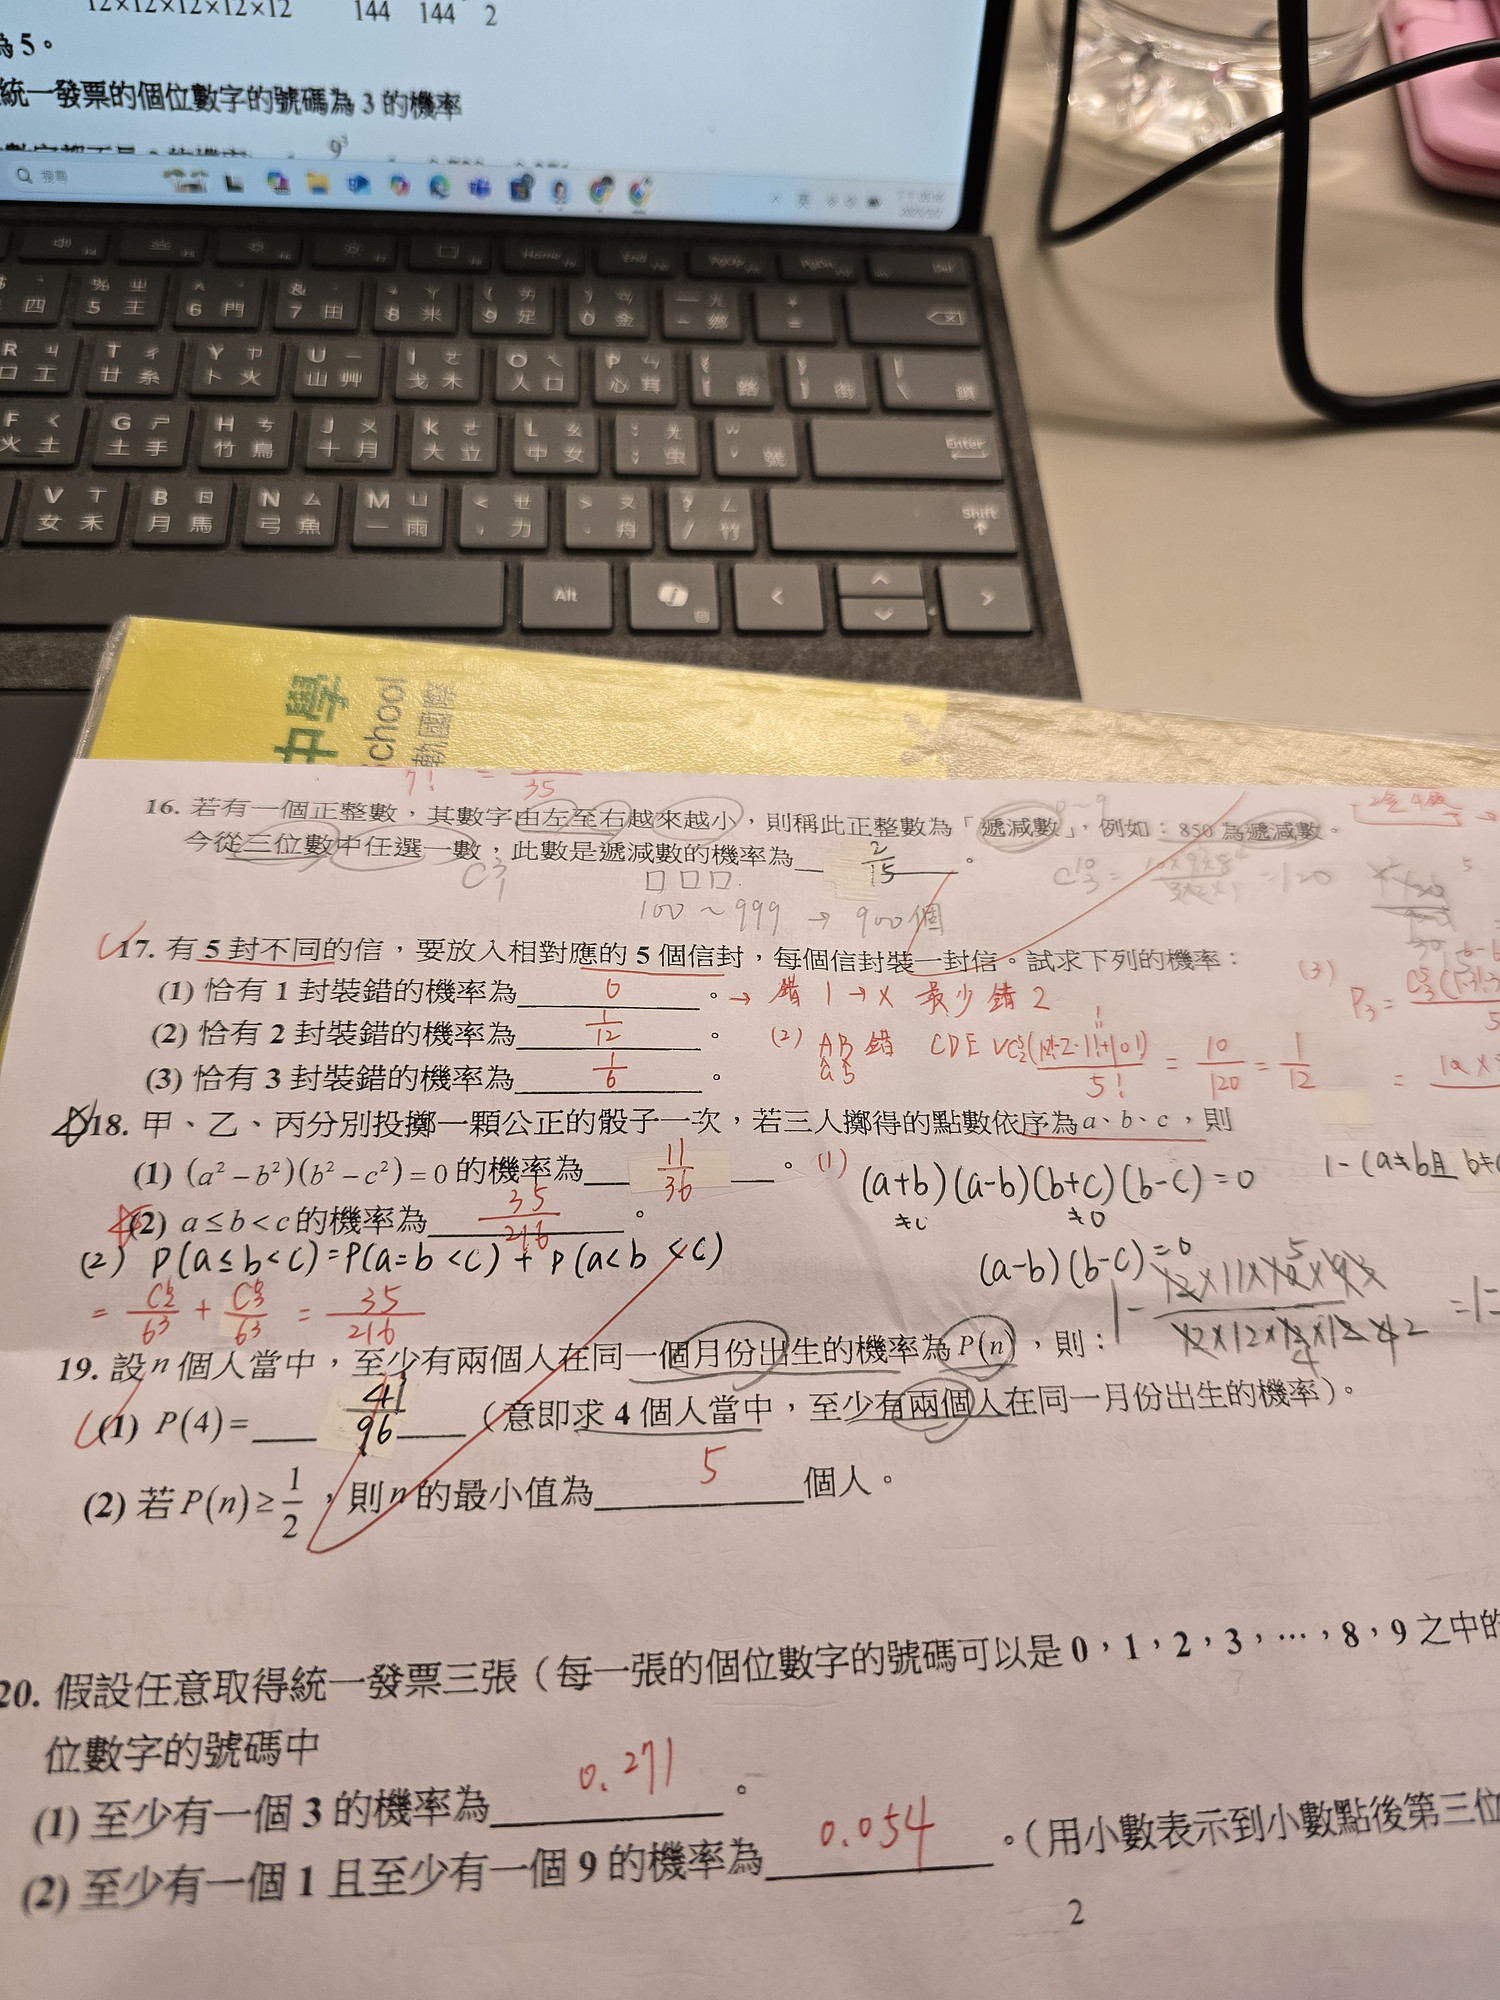 12×12×12×12×12 144 144 2
為 5。
統一發票的個位數字的號碼為 3 的機率
9³
搜尋
英
Home
End
PgUp
PgDn
Del
四 5 王 6 門 7 田 8 米 9 足 0 金 鄉
R 口 工 T 廿 糸 Y 卜 火 U 山 艸 I 戈 木 O 人 口 P 心 耳
F 火 土 G 土 手 H 竹 鳥 J 十 月 K 大 立 L 中 女 虫 Enter
V 女 禾 B 月 馬 N 弓 魚 M 一 雨 力 舟 竹 Shift
Alt
中學
School
7! = 35
16. 若有一個正整數,其數字由左至右越來越小,則稱此正整數為「遞減數」,例如:850 為遞減數。
今從三位數中任選一數,此數是遞減數的機率為 2/15 。
□ □ □.
100 ~ 999 → 900個
= 120
17. 有 5 封不同的信,要放入相對應的 5 個信封,每個信封裝一封信。試求下列的機率:
(1) 恰有 1 封裝錯的機率為 0 。→ 錯 1 → × 最少錯 2
(2) 恰有 2 封裝錯的機率為 1/12 。 (2) AB 錯 CDE ✓ 5! = 10/120 = 1/12
(3) 恰有 3 封裝錯的機率為 1/6 。
(3) P₃ =
18. 甲、乙、丙分別投擲一顆公正的骰子一次,若三人擲得的點數依序為 a、b、c,則
(1) (a² − b²)(b² − c²) = 0 的機率為 11/36 。 (1) (a+b)(a-b)(b+c)(b-c) = 0 1-(a≠b且 b≠c
≠0 ≠0
(2) a ≤ b < c 的機率為 35/216 。
(2) P(a≤b<c) = P(a=b<c) + P(a<b<c) (a-b)(b-c) = 0
= C⁶₂/6³ + C⁶₃/6³ = 35/216
19. 設 n 個人當中,至少有兩個人在同一個月份出生的機率為 P(n),則:
(1) P(4) = 41/96 (意即求 4 個人當中,至少有兩個人在同一月份出生的機率)。
(2) 若 P(n) ≥ 1/2,則 n 的最小值為 5 個人。
20. 假設任意取得統一發票三張(每一張的個位數字的號碼可以是 0,1,2,3,…,8,9 之中的
位數字的號碼中
(1) 至少有一個 3 的機率為 0.271 。
(2) 至少有一個 1 且至少有一個 9 的機率為 0.054 。(用小數表示到小數點後第三位
2